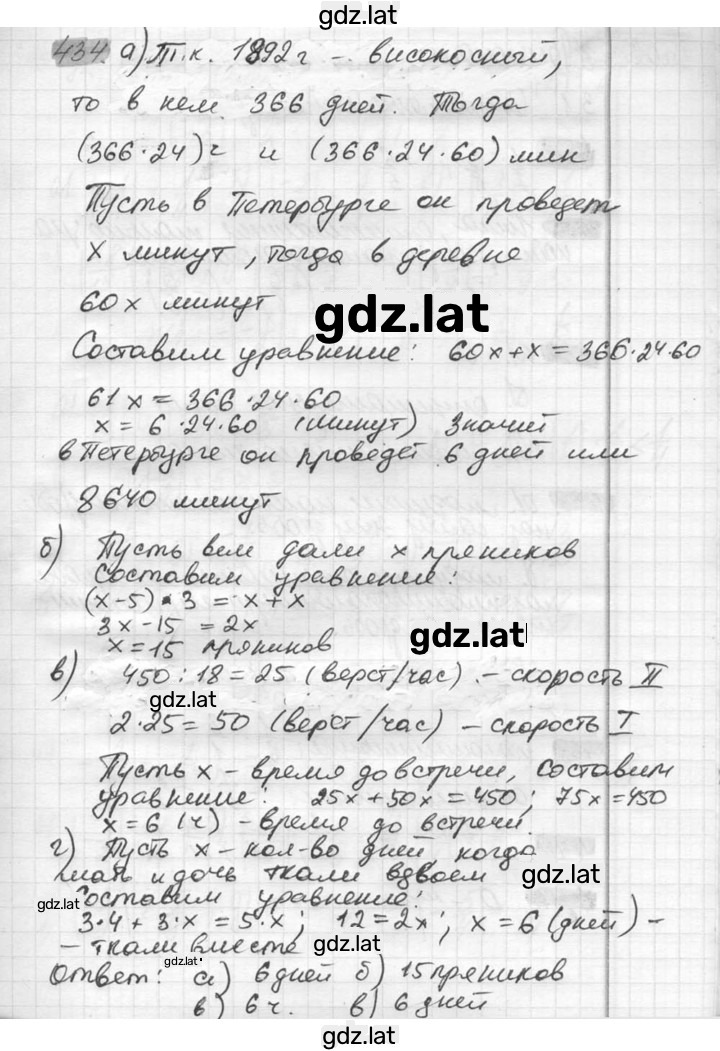 gdz.lat
434. а) Т.к. 1892г – високосный,
то в нем 366 дней. Тогда
(366·24)ч и (366·24·60) мин
Пусть в Петербурге он проведет
x минут, тогда в деревне
60x минут
gdz.lat
Составим уравнение: 60x+x=366·24·60
61x=366·24·60
x=6·24·60 (минут) Значит
в Петербурге он проведет 6 дней или
8640 минут
б) Пусть всем дали x пряников
Составим уравнение:
(x-5)·3=x+x
3x-15=2x
gdz.lat
x=15 пряников
в) 450:18=25 (верст/час) – скорость II
gdz.lat
2·25=50 (верст/час) – скорость I
Пусть x – время до встречи, составим
уравнение: 25x+50x=450; 75x=450
x=6 (ч) – время до встречи.
г) Пусть x – кол-во дней, когда
мать и дочь ткали вдвоем
gdz.lat
Составим уравнение:
gdz.lat
3·4+3·x=5·x; 12=2x; x=6 (дней) –
– ткали вместе
gdz.lat
Ответ: а) 6 дней б) 15 пряников
в) 6 ч. в) 6 дней
gdz.lat